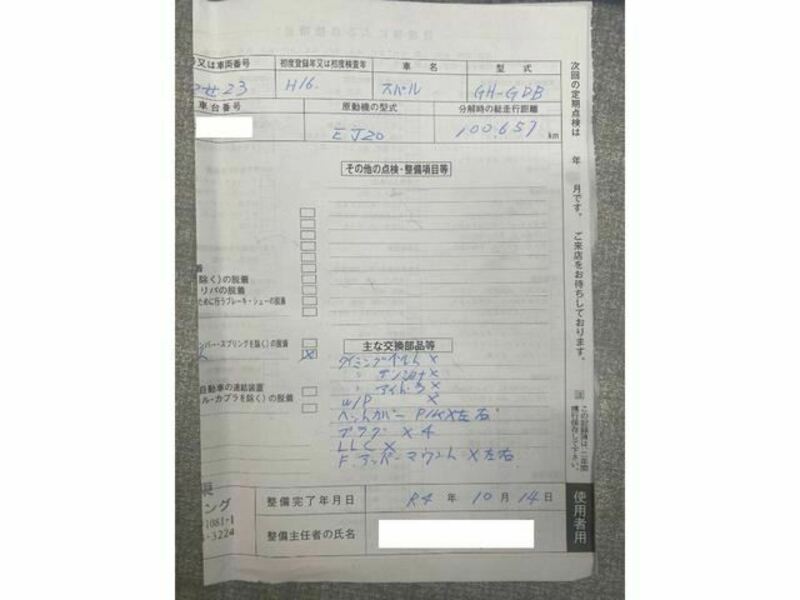 又は車両番号
初度登録年又は初度検査年
車名
型式
せ23
H16.
スバル
GH-GDB
車台番号
原動機の型式
分解時の総走行距離
EJ20
100,657 km
その他の点検・整備項目等
着
除く)の脱着
リバの脱着
ために行うブレーキ・シューの脱着
ンパー・スプリングを除く)の脱着
自動車の連結装置
ル・カプラを除く)の脱着
主な交換部品等
タイミングベルト X
〃 テンショナ X
〃 アイドラ X
W/P X
ヘッドカバー P/K X左右
プラグ X4
LLC X
F. アッパーマウント X左右
ング
1081-1
-3224
整備完了年月日
R4 年 10 月 14 日
整備主任者の氏名
次回の定期点検は 年 月です。ご来店をお待ちしております。
注 この記録簿は、二年間携行保存して下さい。
使用者用